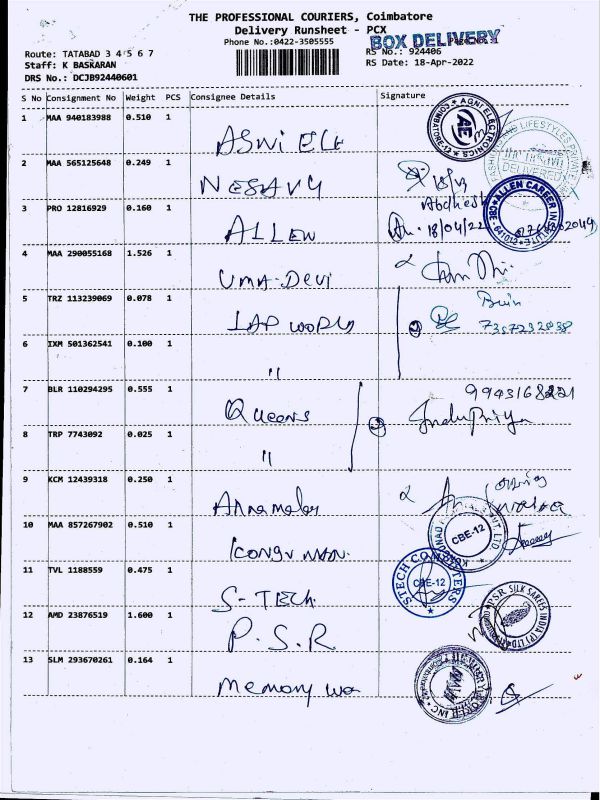 THE PROFESSIONAL COURIERS, Coimbatore
Delivery Runsheet - PCX
Phone No.:0422-3505555
BOX DELIVERY
Route: TATABAD 3 4 5 6 7
Staff: K BASKARAN
DRS No.: DCJB92440601
RS No.: 924406
RS Date: 18-Apr-2022
S No Consignment No Weight PCS Consignee Details Signature
1 MAA 940183988 0.510 1 ASWI ELE
AGNI ELECTRONICS COIMBATORE-12 AE
2 MAA 565125648 0.249 1 NESAVY
LIFESTYLES DELIVERED
3 PRO 12816929 0.160 1 ALLEN
18/04/22
ALLEN CAREER INSTITUTE CBE 641012
4 MAA 290055168 1.526 1 UMA-DEVI
5 TRZ 113239069 0.078 1 LAP WORLD
7357232838
6 IXM 501362541 0.100 1 "
7 BLR 110294295 0.555 1 Queens
Indupriya
8 TRP 7743092 0.025 1 "
9 KCM 12439318 0.250 1 Annamalai
10 MAA 857267902 0.510 1 KONGU NAD
CBE-12
11 TVL 1188559 0.475 1 S-TECH
STECH COMPUTERS CBE-12
12 AMD 23876519 1.600 1 P.S.R
P.S.R. SILK SAREES INDIA (P) LTD
13 SLM 293670261 0.164 1 Memory wo